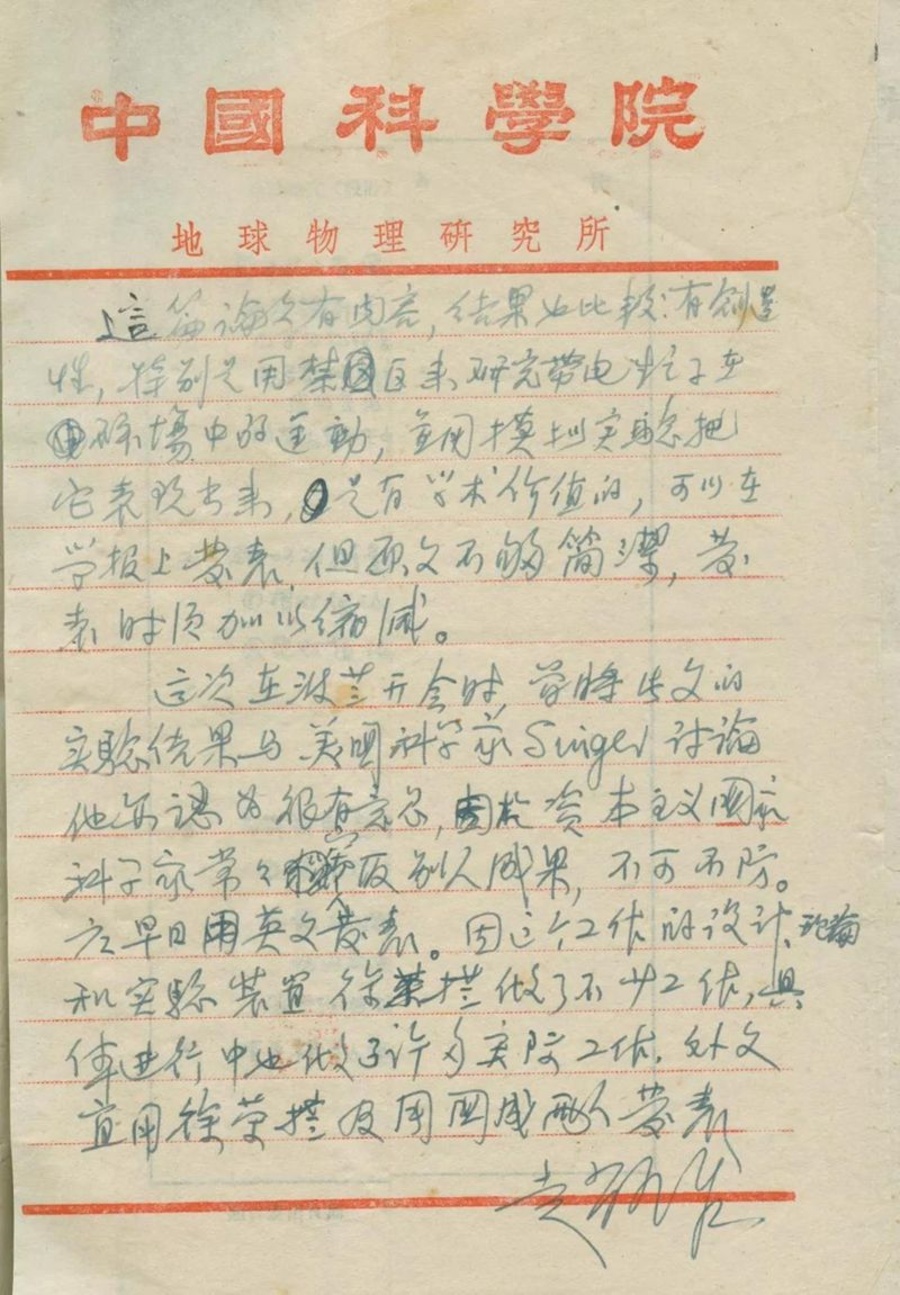 中國科學院
地球物理研究所
這篇论文有内容，结果也比较有创造
性，特别是用禁区来研究带电粒子在
磁場中的运動，並用模拟实验把
它表现出来，是有学术价值的，可以在
学报上发表，但原文不够简潔，发
表时须加以缩减。
这次在波兰开会时，曾将此文的
实验结果与美国科学家Singer讨论
他亦認为很有意思，由於资本主义国家
科学家常々剽窃别人成果，不可不防。
应早日用英文发表。因这个工作的设计、理論
和实验装置徐荣栏做了不少工作，具
体进行中也做了许多实际工作，外文
宜用徐荣栏及周国成两人发表
赵九章